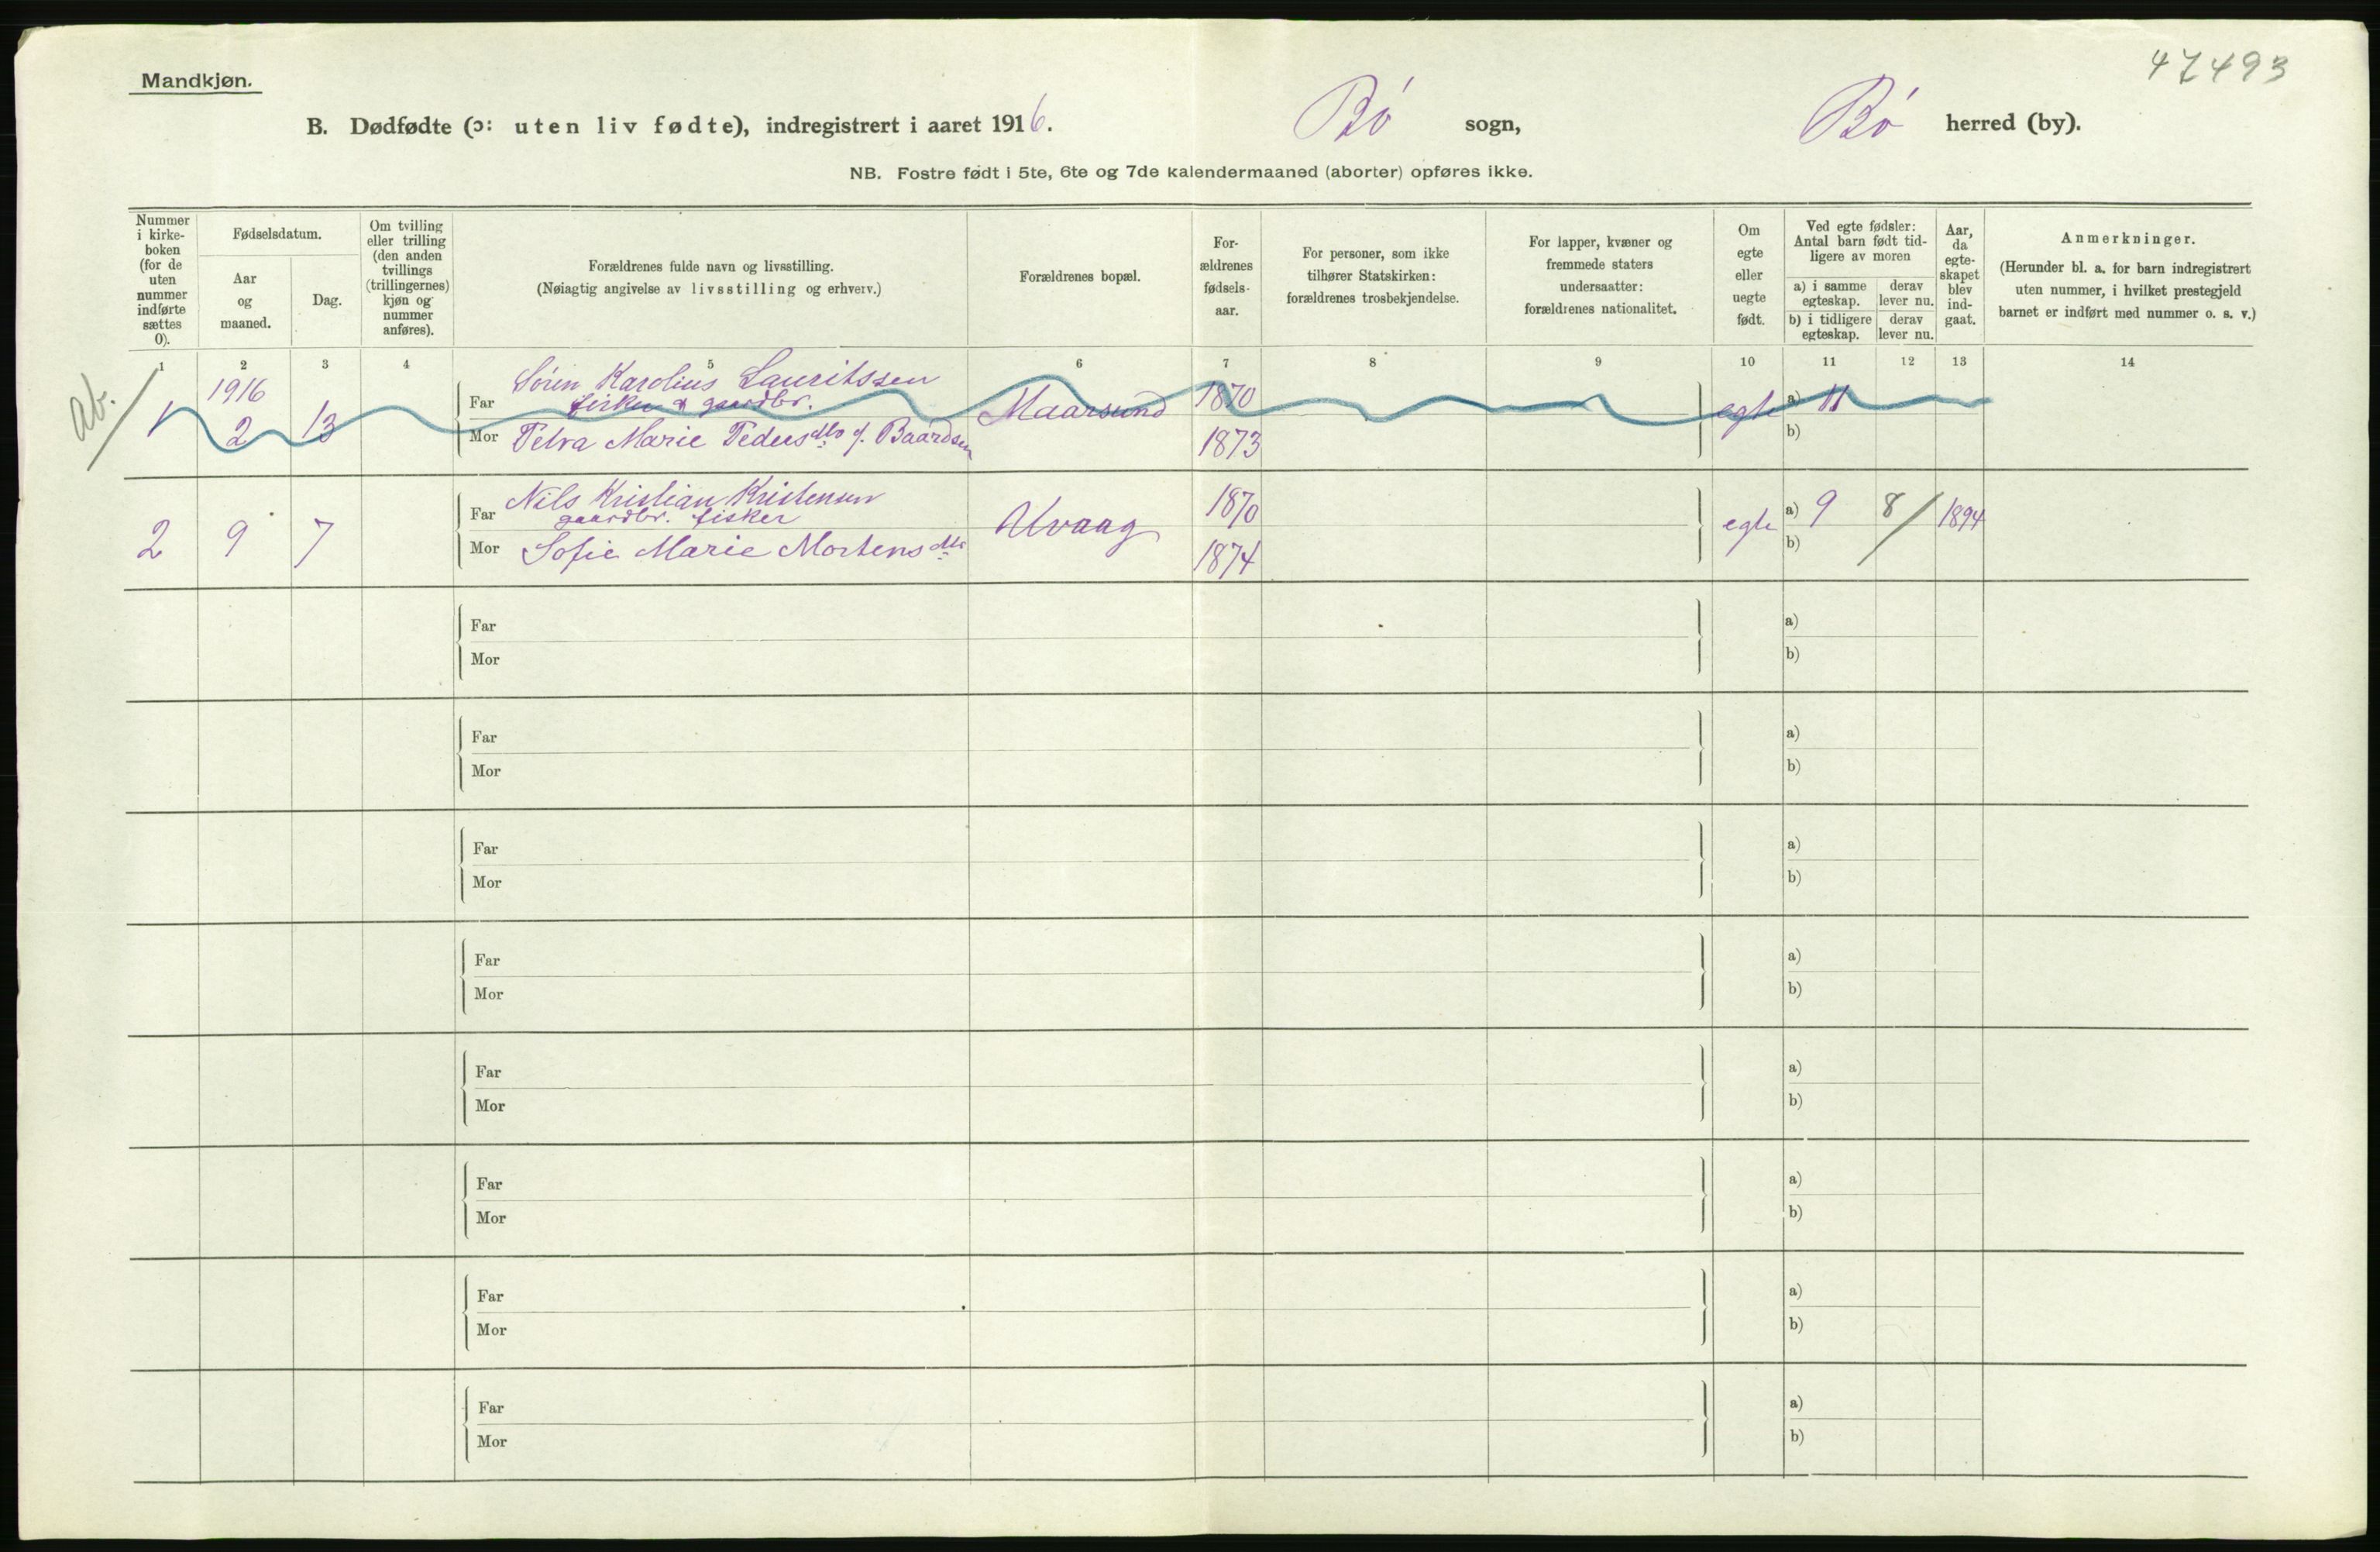 47493
Mandkjøn.
B. Dødfødte (ɔ: uten liv fødte), indregistrert i aaret 1916. Bø sogn, Bø herred (by).
NB. Fostre født i 5te, 6te og 7de kalendermaaned (aborter) opføres ikke.
Nummer i kirke-boken (for de uten nummer indførte sættes 0).
Fødselsdatum.
Aar og maaned.
Dag.
Om tvilling eller trilling (den anden tvillings (trillingernes) kjøn og nummer anføres).
Forældrenes fulde navn og livsstilling.
(Nøiagtig angivelse av livsstilling og erhverv.)
Forældrenes bopæl.
For-ældrenes fødsels-aar.
For personer, som ikke tilhører Statskirken: forældrenes trosbekjendelse.
For lapper, kvæner og fremmede staters undersaatter: forældrenes nationalitet.
Om egte eller uegte født.
Ved egte fødsler: Antal barn født tid-ligere av moren
a) i samme egteskap.
derav lever nu.
b) i tidligere egteskap.
derav lever nu.
Aar, da egte-skapet blev ind-gaat.
Anmerkninger.
(Herunder bl. a. for barn indregistrert uten nummer, i hvilket prestegjeld barnet er indført med nummer o. s. v.)
1 2 3 4 5 6 7 8 9 10 11 12 13 14
Ab.
1916
Søren Karolius Lauritssen
Far fisker & gaardbr. 1870
1 2 13 Maarsund egte a) 11
Mor Petra Marie Pedersdtr f. Baardsen 1873 b)
Nils Kristian Kristensen
Far gaardbr. fisker 1870
2 9 7 Uvaag egte a) 9 8 1894
Mor Sofie Marie Mortensdtr 1874 b)
Far a)
Mor b)
Far a)
Mor b)
Far a)
Mor b)
Far a)
Mor b)
Far a)
Mor b)
Far a)
Mor b)
Far a)
Mor b)
Far a)
Mor b)